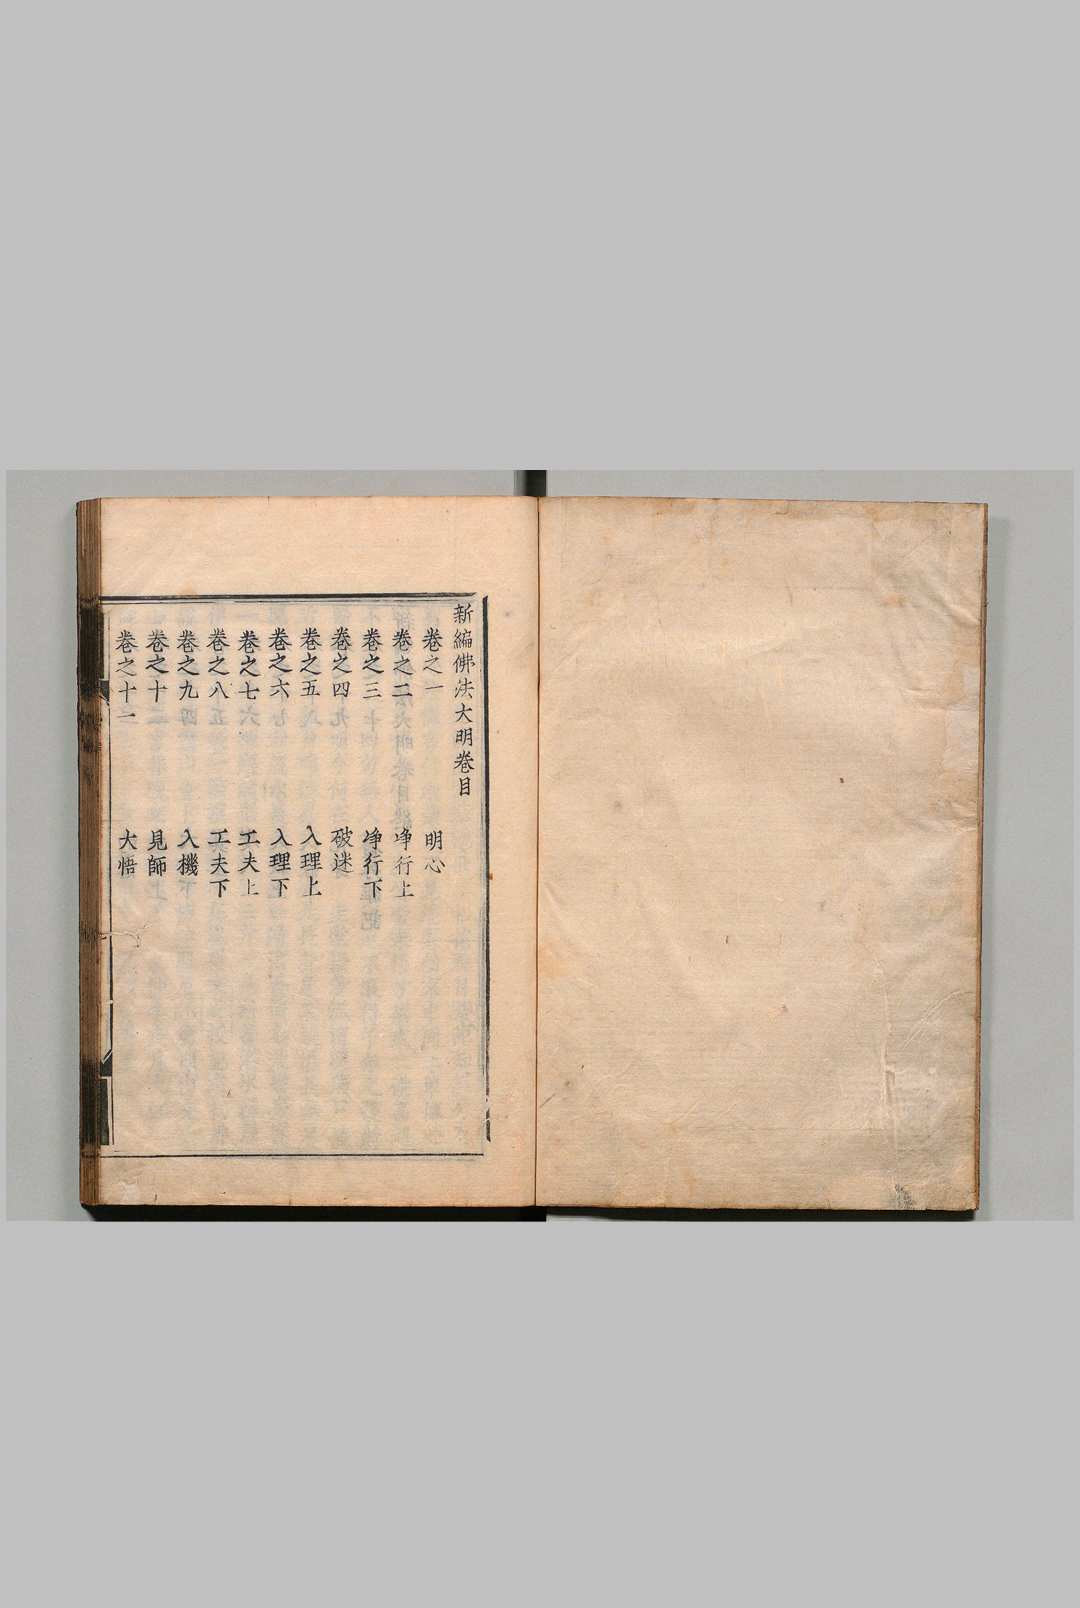 新編佛法大明卷目
卷之一 明心
卷之二 净行上
卷之三 净行下
卷之四 破迷
卷之五 入理上
卷之六 入理下
卷之七 工夫上
卷之八 工夫下
卷之九 入機
卷之十 見師
卷之十一 大悟